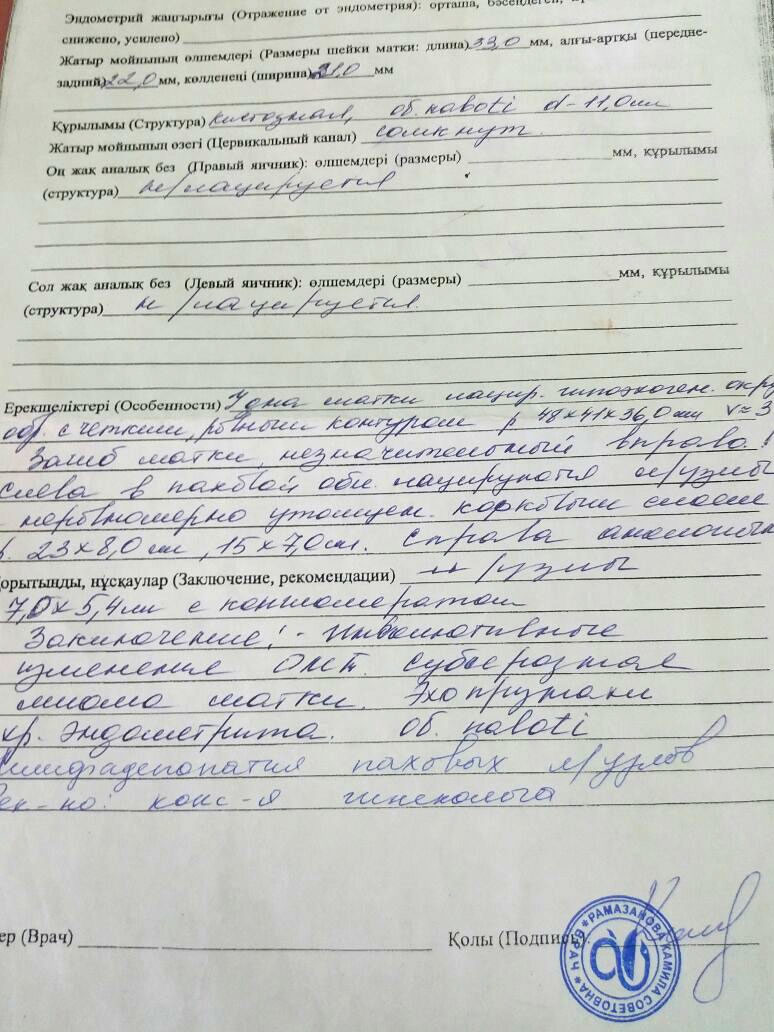 Эндометрий жаңғырығы (Отражение от эндометрия): орташа, бәсеңдеген,
снижено, усилено)
Жатыр мойнының өлшемдері (Размеры шейки матки: длина) 33,0 мм, алғы-артқы (передне-
задний) 22,0 мм, көлденеңі (ширина) 31,0 мм
Құрылымы (Структура) кистозная, об. naboti d-11,0мм
Жатыр мойнының өзегі (Цервикальный канал) сомкнут.
Оң жақ аналық без (Правый яичник): өлшемдері (размеры) мм, құрылымы
(структура) н/лацируется
Сол жақ аналық без (Левый яичник): өлшемдері (размеры) мм, құрылымы
(структура) н/лацируется.
Ерекшеліктері (Особенности) У дна матки лацир. гипоэхоген. окру
обр. с четким, ровным контуром р 48х41х36,0мм v≈3
Загиб матки, незначительный вправо.!
Слева в паховой обл. лацируются л/узлы
неравномерно утолщен. корковым слоем
р. 23х8,0мм, 15х7,0мм. Справа аналогичн
орытынды, нұсқаулар (Заключение, рекомендации) л/узлы
7,0х5,4мм с конгломератом
Заключение: - Инволютивные
изменения ОМТ. Субсерозная
миома матки. Эхопризнаки
хр. эндометрита. об. naboti
Лимфаденопатия паховых л/узлов
Рек-но: конс-я гинеколога
ер (Врач) Қолы (Подпись)
РАМАЗАНОВА КАМИЛА СОВЕТОВНА * ВРАЧ *